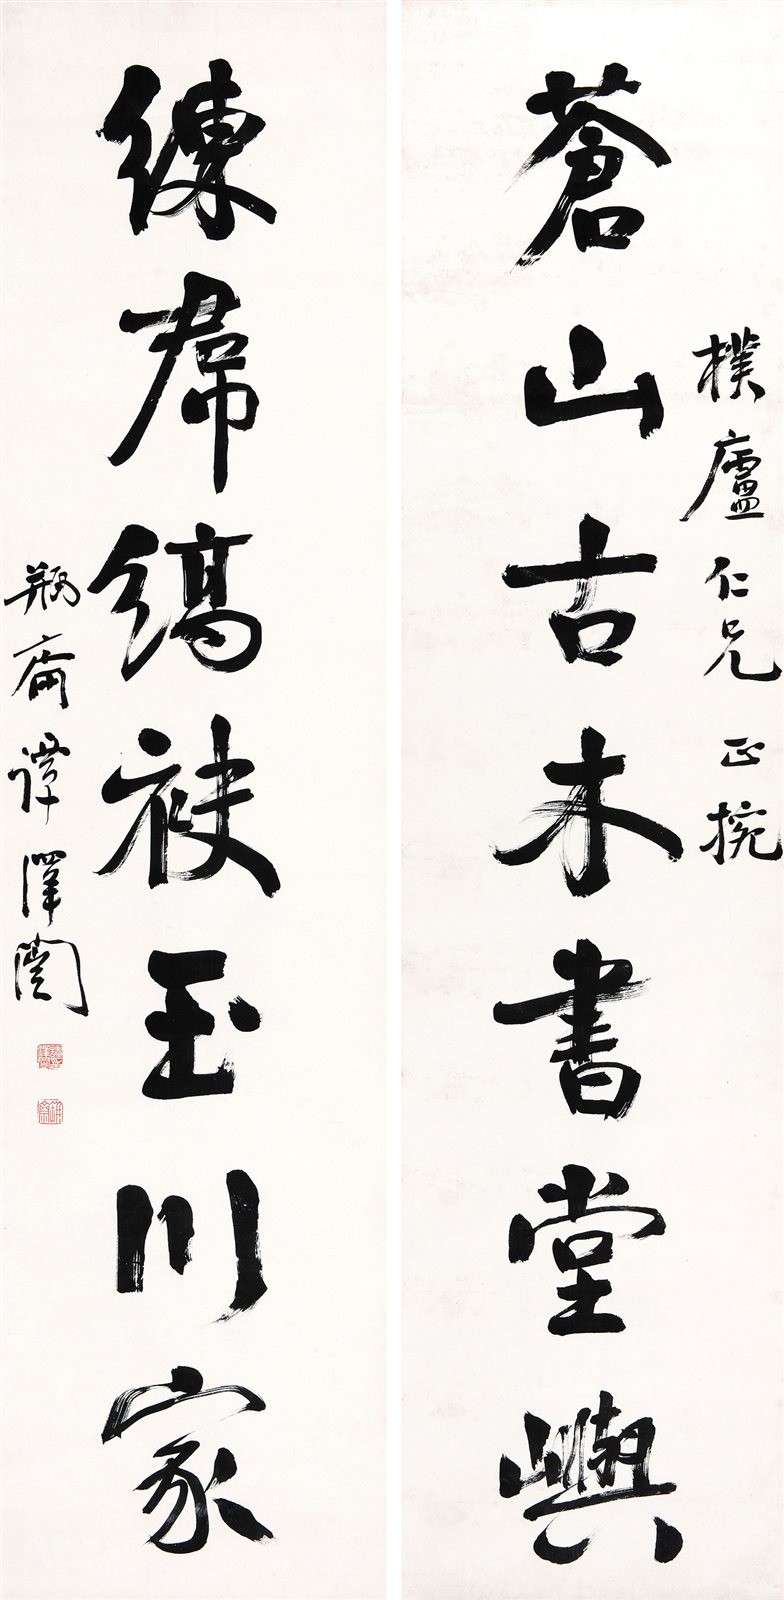 樸廬仁兄 正捥
蒼山古木書堂嶼
練帬縞袂玉川家
瓶齋譚澤闓